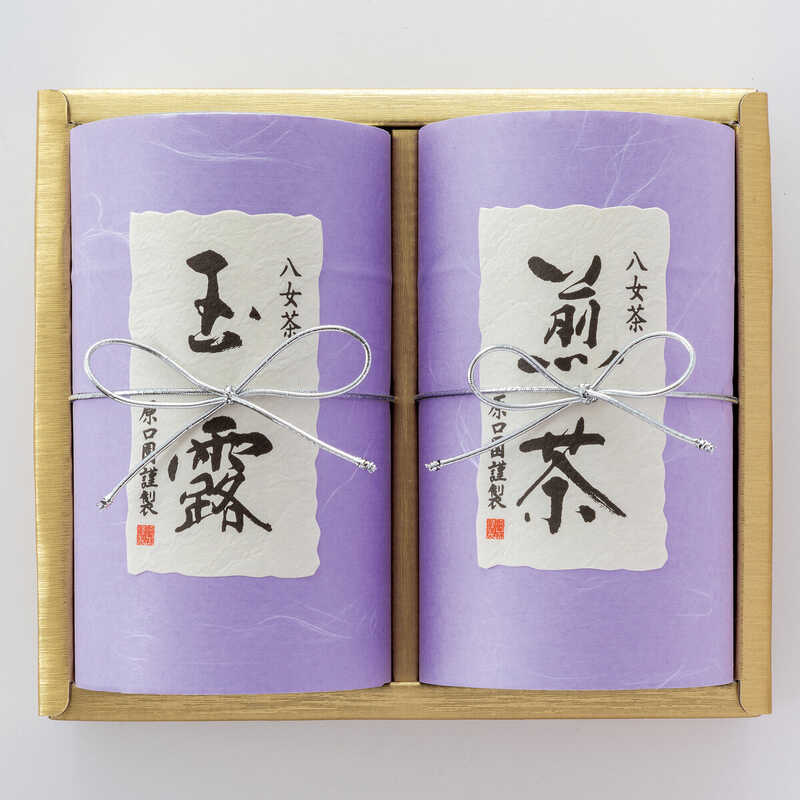 八女茶
玉露
原口園謹製
八女茶
煎茶
原口園謹製